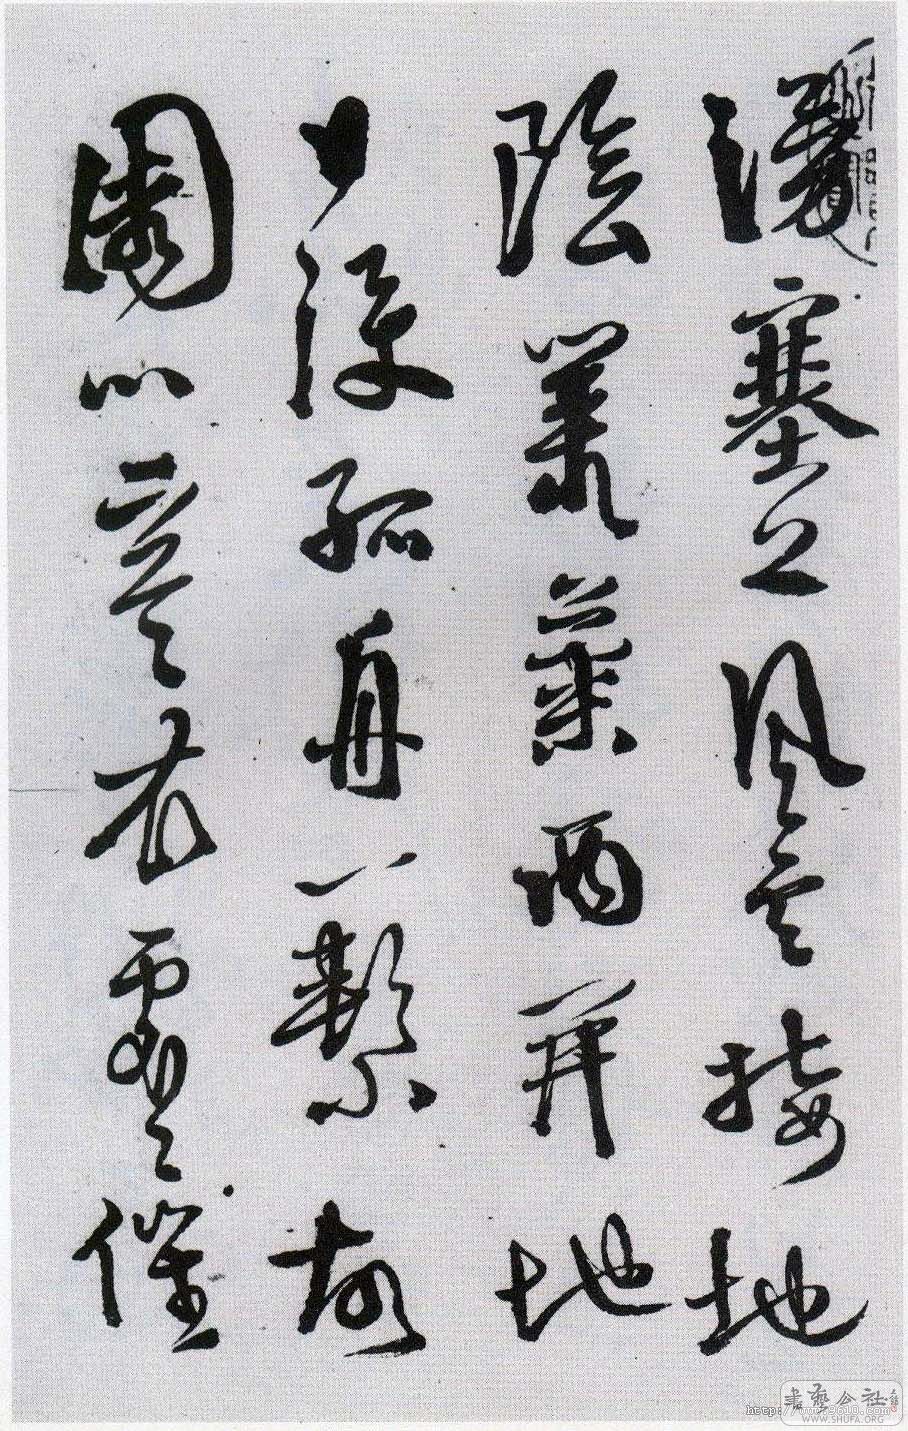 湧塞上風雲接地
陰叢菊兩開他
日淚孤舟一繫故
園心寒衣處々催
書藝公社
WWW.SHUFA.ORG
http://www.9610.com